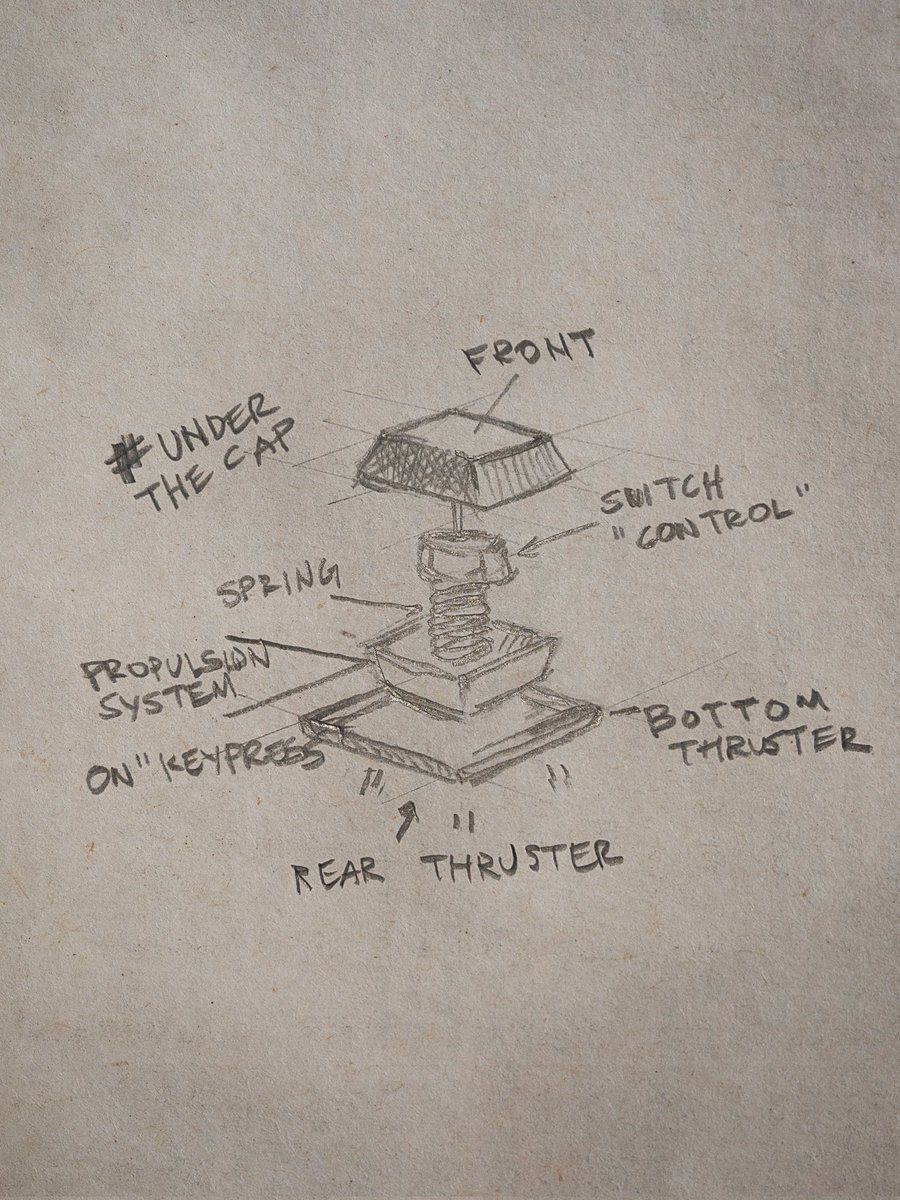 FRONT
#UNDER
THE CAP
SWITCH
"CONTROL"
SPRING
PROPULSION
SYSTEM
ON "KEYPRESS
BOTTOM
THRUSTER
REAR THRUSTER